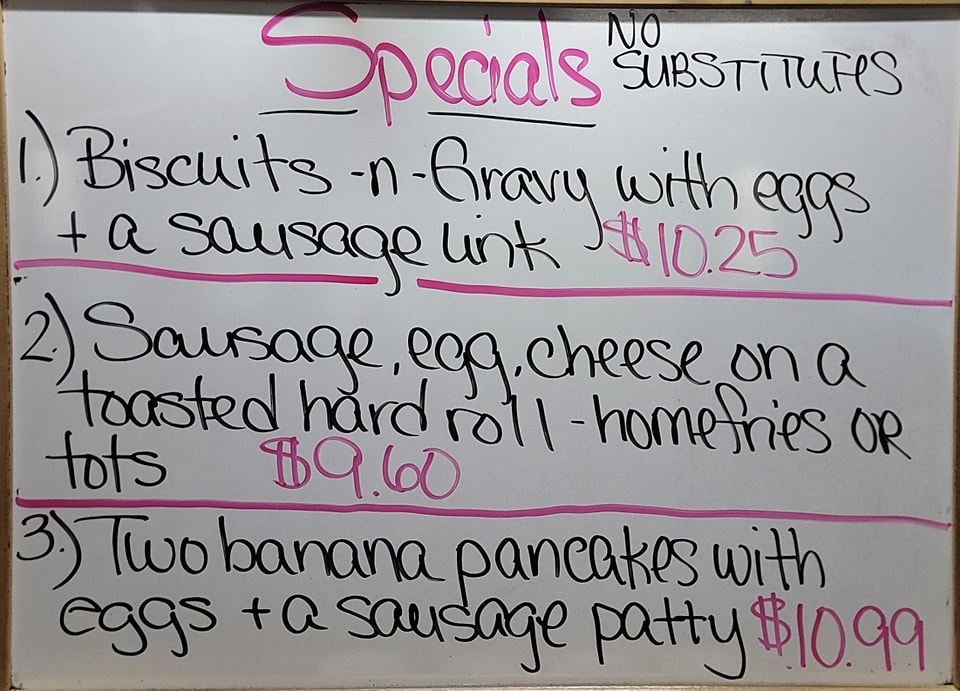 Specials
NO
SUBSTITUTES
1.) Biscuits -n- Gravy with eggs
+ a sausage link $10.25
2.) Sausage, egg, cheese on a
toasted hard roll - homefries OR
tots $9.60
3.) Two banana pancakes with
eggs + a sausage patty $10.99